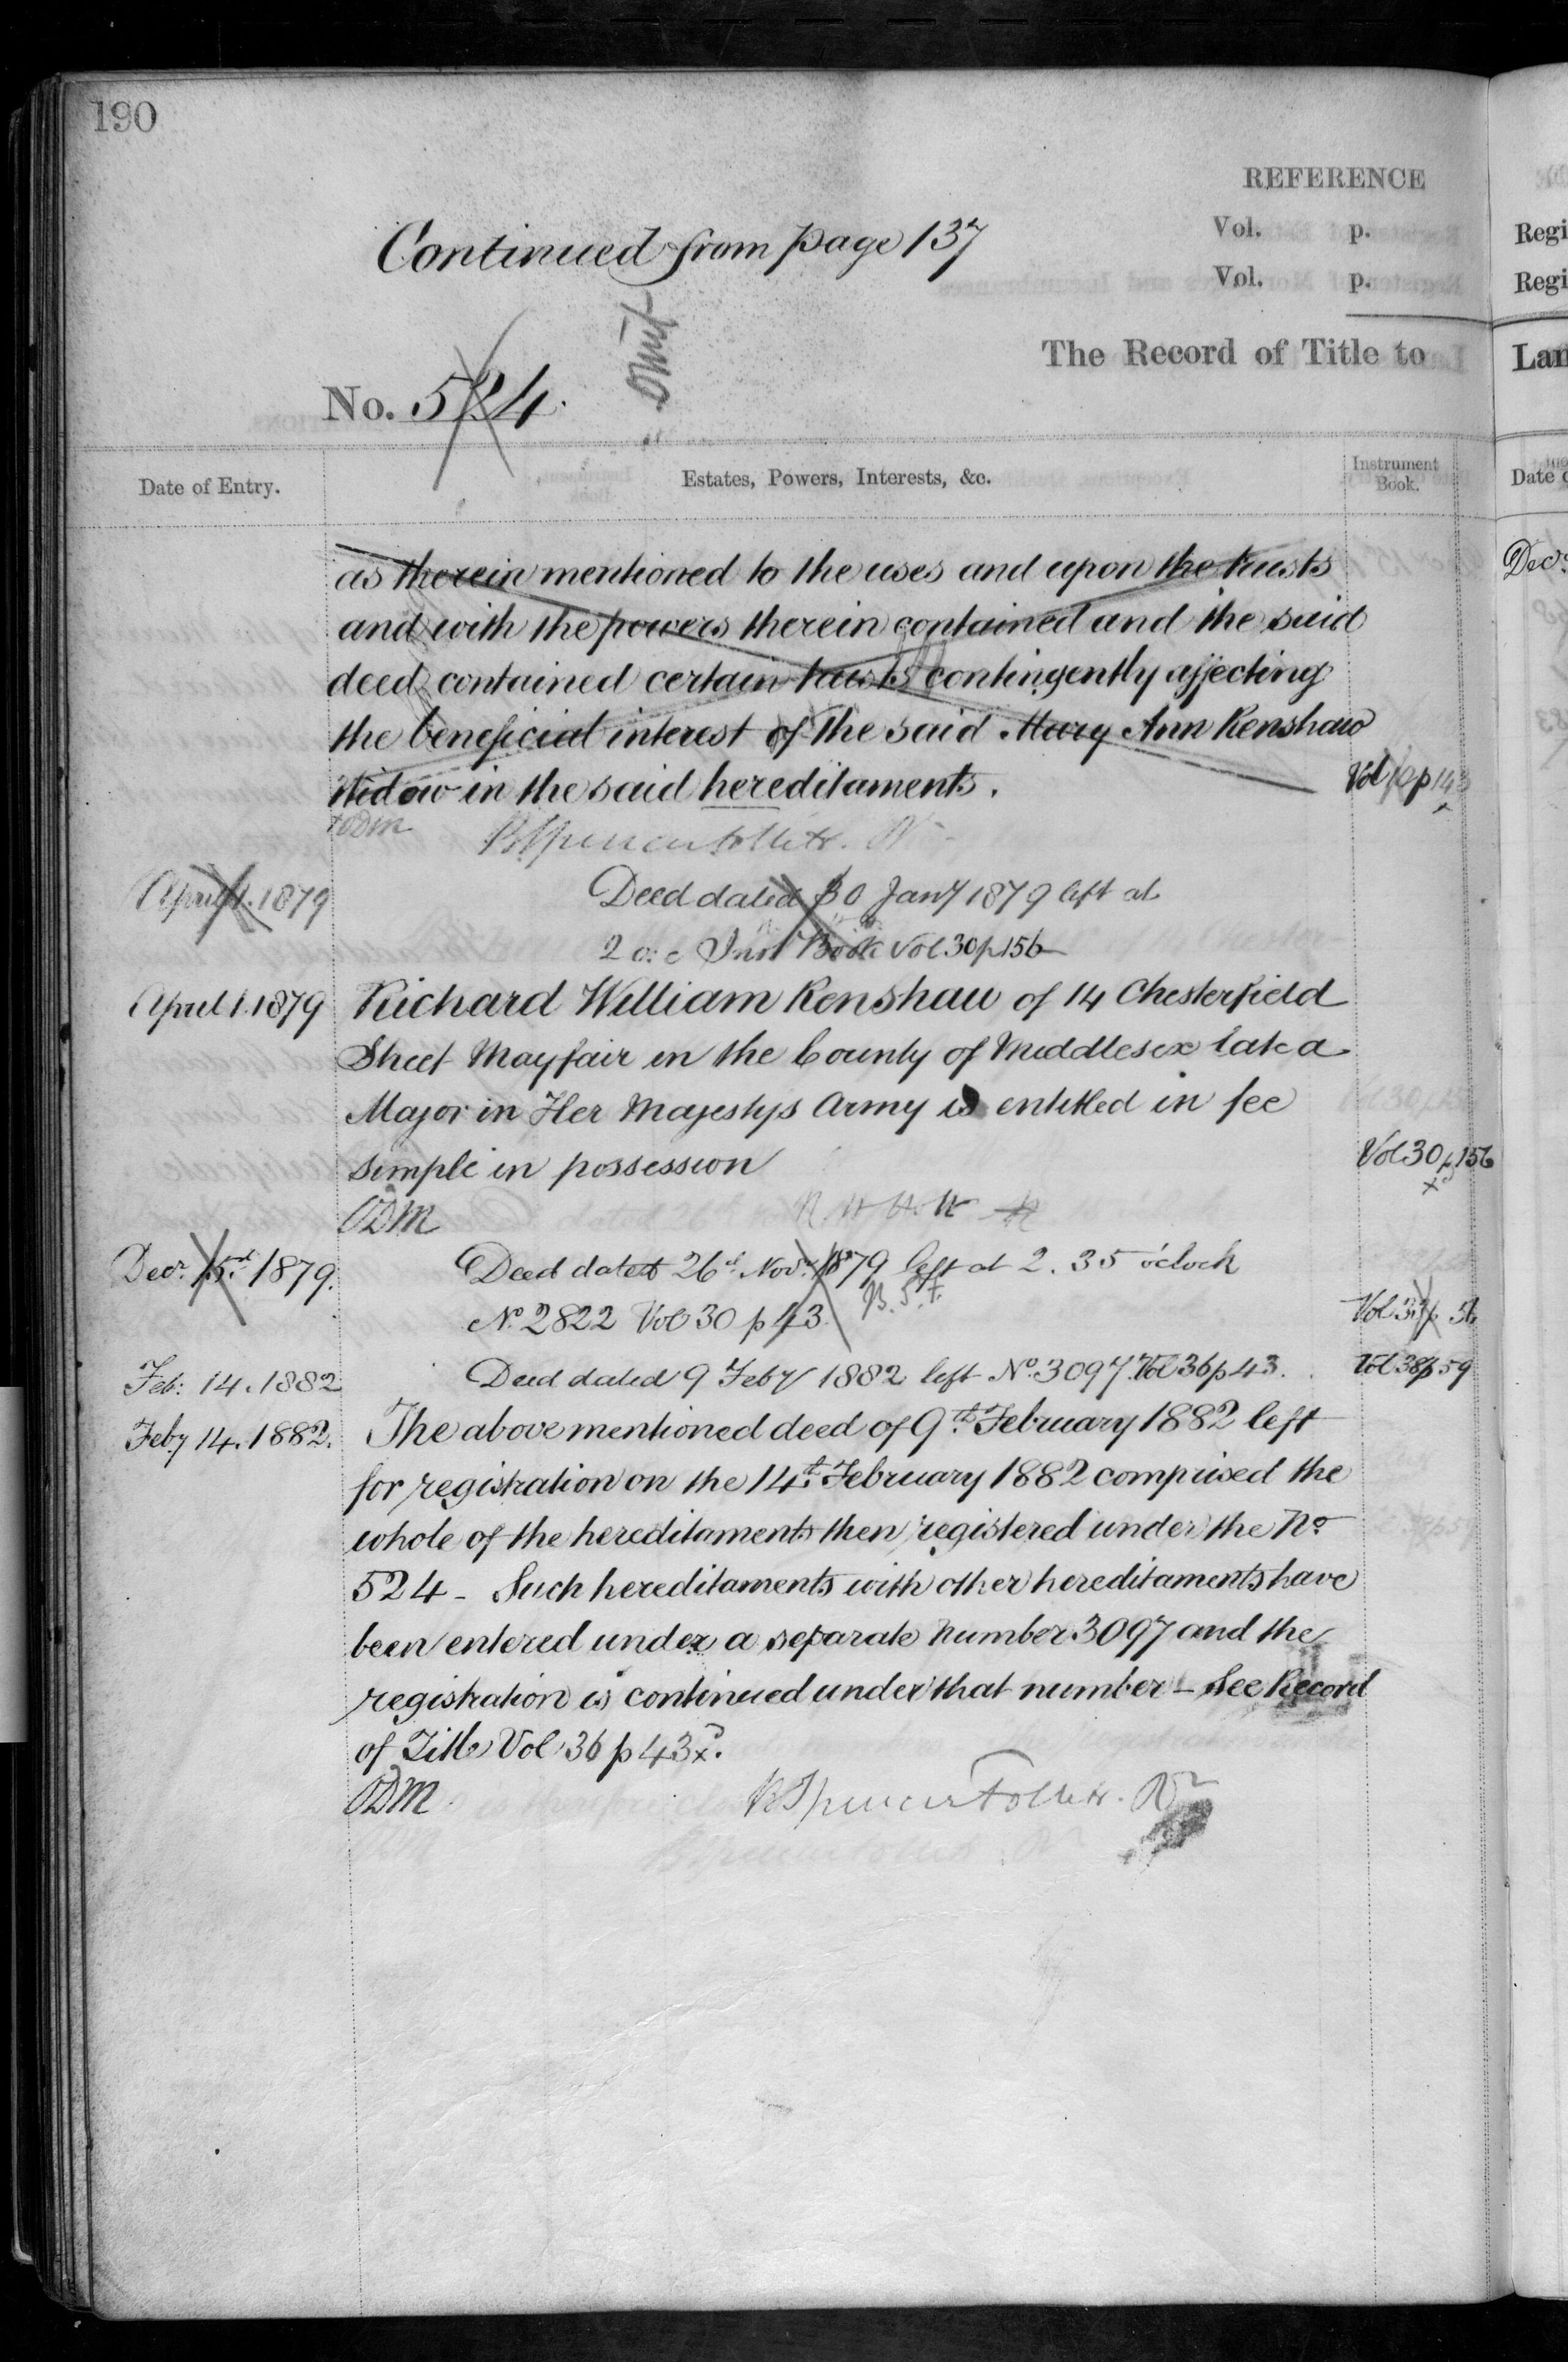 190
REFERENCE
Continued from page 137
Vol. p.
Vol. p.
Regi
Regi
omit
The Record of Title to
Lan
No. 524.
Date of Entry.
Estates, Powers, Interests, &c.
Instrument Book.
Date o
as therein mentioned to the uses and upon the trusts
Decr
and with the powers therein contained and the said
deed contained certain trusts contingently affecting
the beneficial interest of the said Mary Ann Renshaw
Widow in the said hereditaments.
Vol p 14
ODM
R Spencer Follett. Rr
April 1. 1879
Deed dated 30 Jany 1879 left at
2 o. c Inst Book Vol 30 p 156
April 1. 1879
Richard William Renshaw of 14 Chesterfield
Street Mayfair in the County of Middlesex late a
Major in Her Majestys Army is entitled in fee
simple in possession
Vol 30 p 156
x
ODM
Decr. 1879.
Deed dated 26th Novr. 1879 left at 2.35 o'clock
B. S. F.
No. 2822 Vol 30 p 43.
Vol 33 p 51
Feb: 14. 1882
Deed dated 9 Feby 1882 left No. 3097. Vol 36 p 43.
Vol 38 p 59
Feby 14. 1882.
The above mentioned deed of 9th February 1882 left
for registration on the 14th February 1882 comprised the
whole of the hereditaments then registered under the No
524 - Such hereditaments with other hereditaments have
been entered under a separate number 3097 and the
registration is continued under that number - See Record
of Title Vol 36 p 43 x.
ODM
R Spencer Follett. Rr